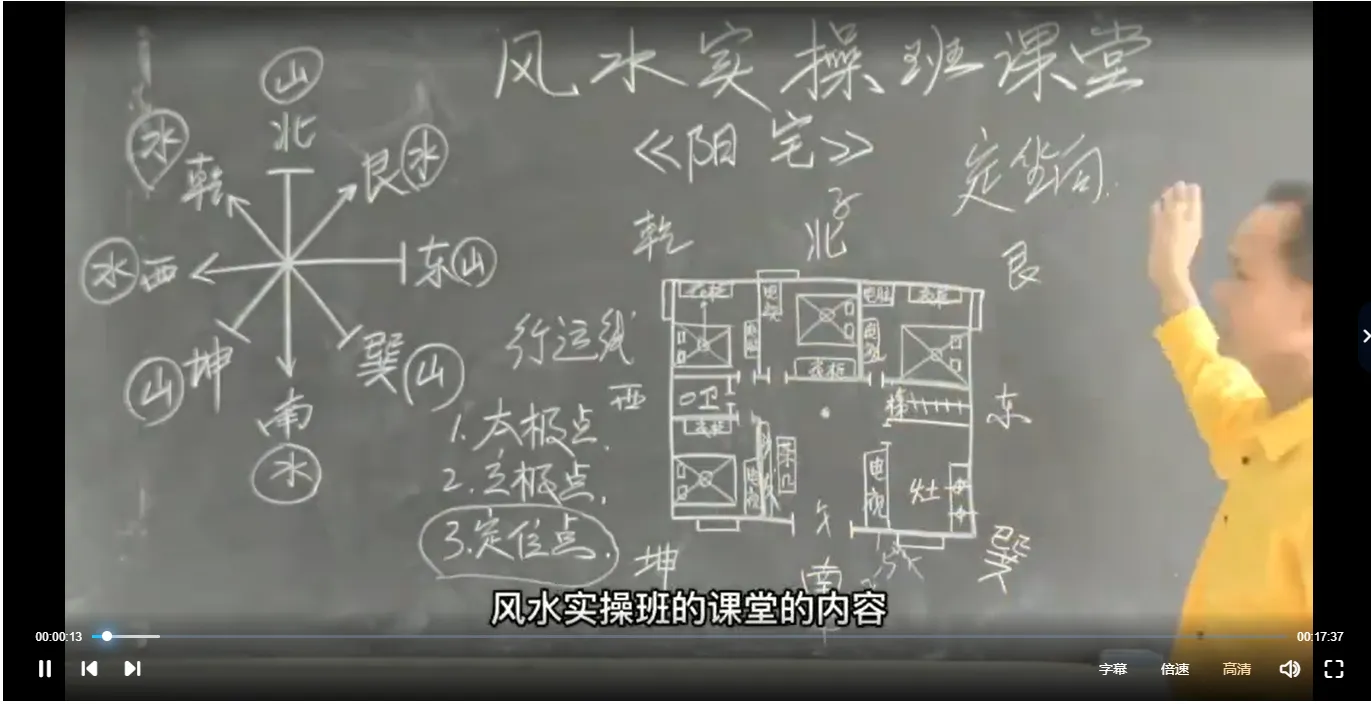 风水实操班课堂
《阳宅》
定坐向.
山
北
水
乾
艮水
水西
东山
山坤
巽山
南
水
行运线
1.太极点.
2.立极点.
3.定位点.
乾
子
北
艮
西
东
坤
午
南
巽
衣柜
电视
电脑
衣柜
电视
衣柜
卫
梯
衣柜
电视
电视
灶
风水实操班的课堂的内容
00:00:13
00:17:37
字幕
倍速
高清